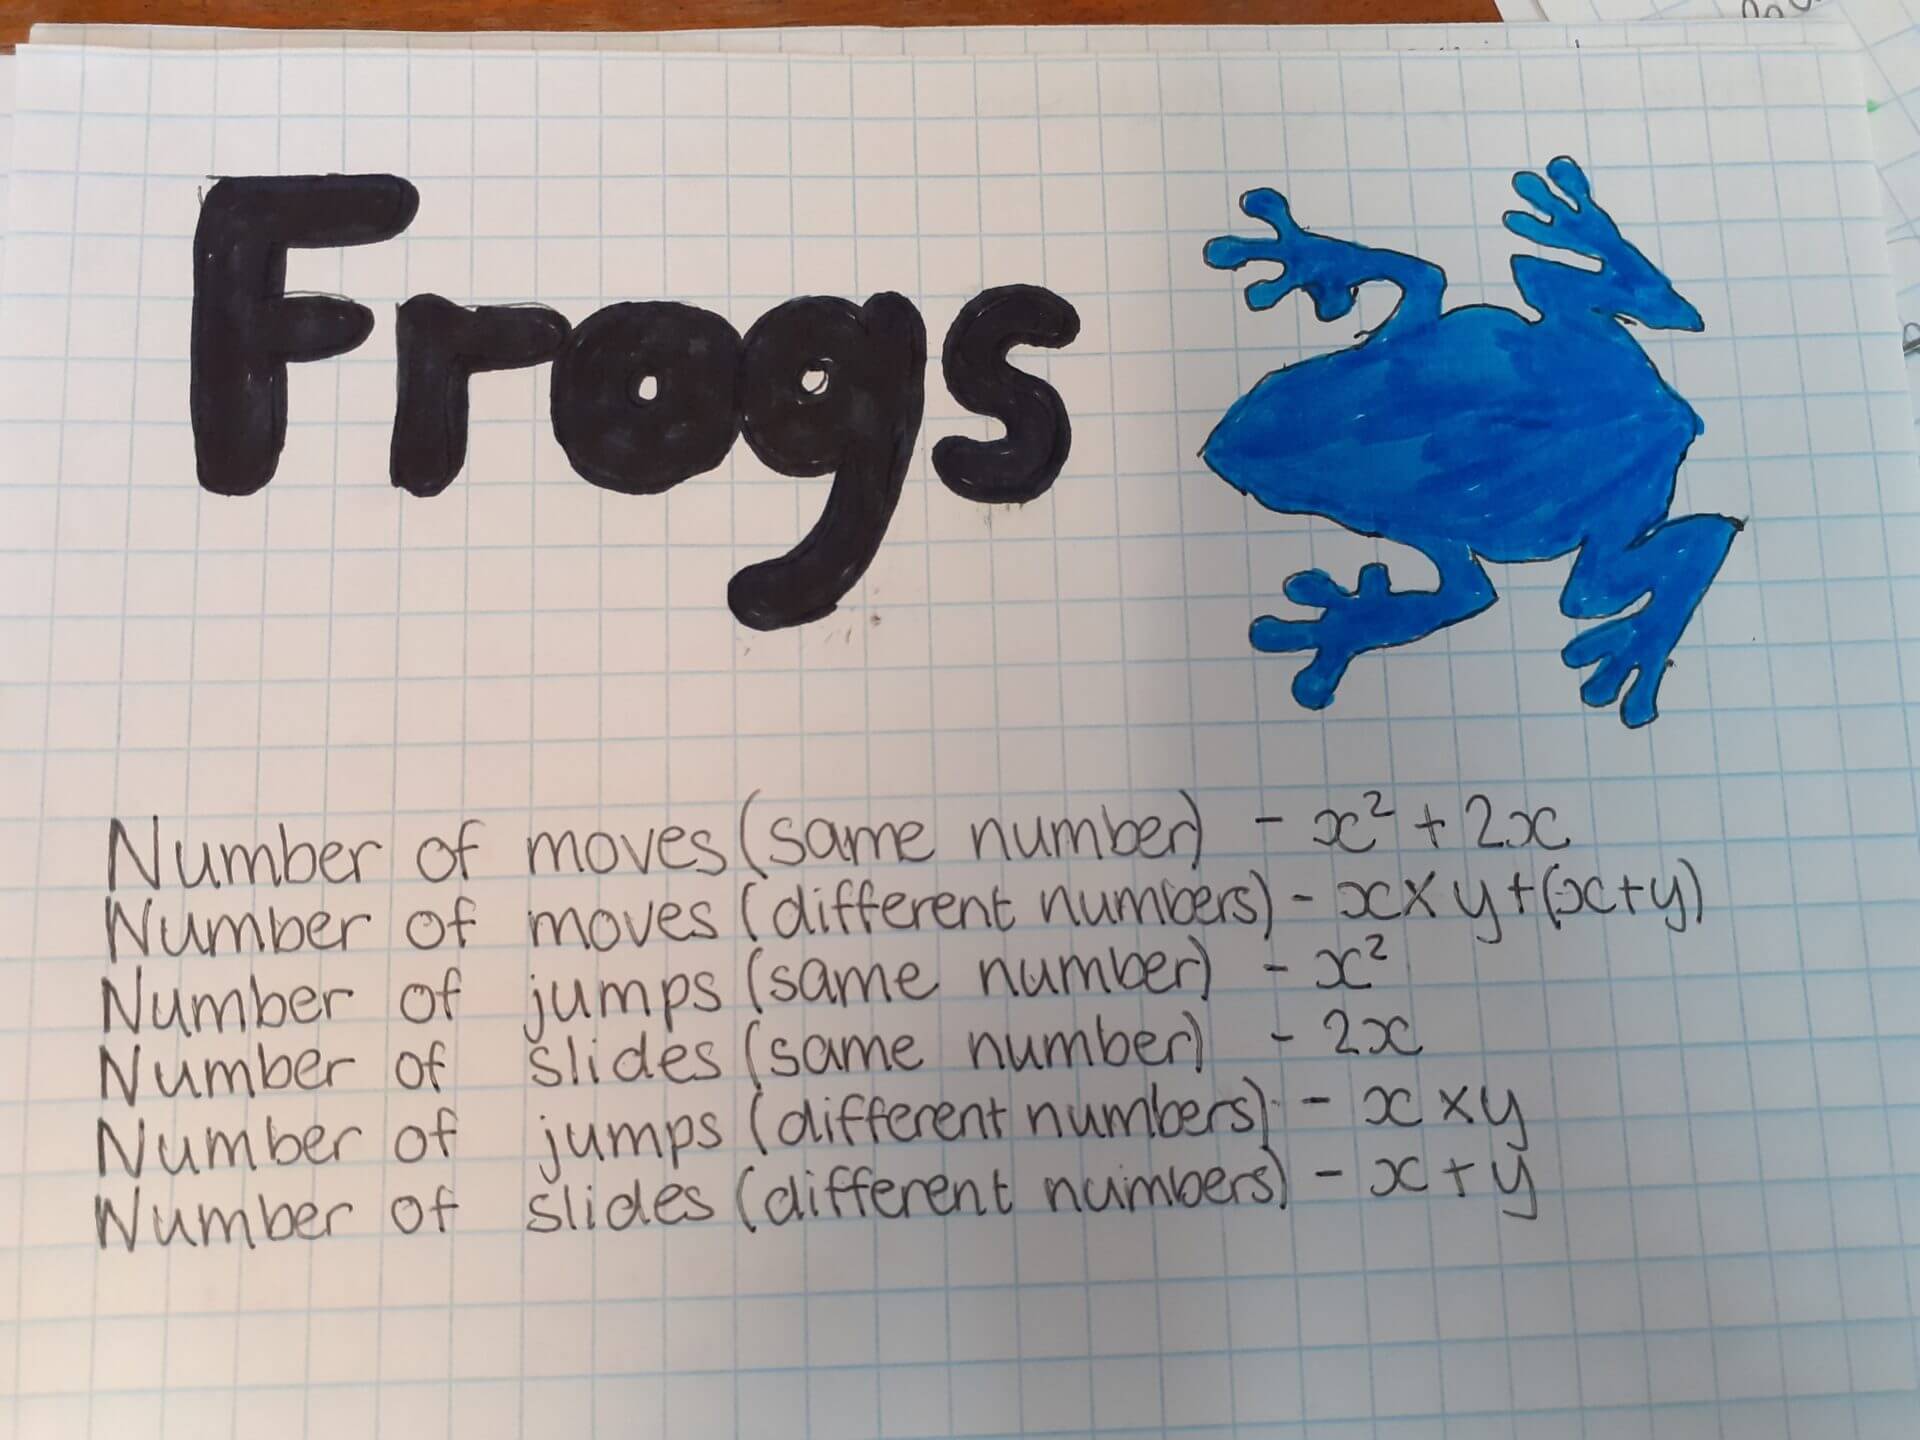 Frogs
Number of moves (same number) - x² + 2x
Number of moves (different numbers) - x × y + (x+y)
Number of jumps (same number) - x²
Number of slides (same number) - 2x
Number of jumps (different numbers) - x × y
Number of slides (different numbers) - x + y